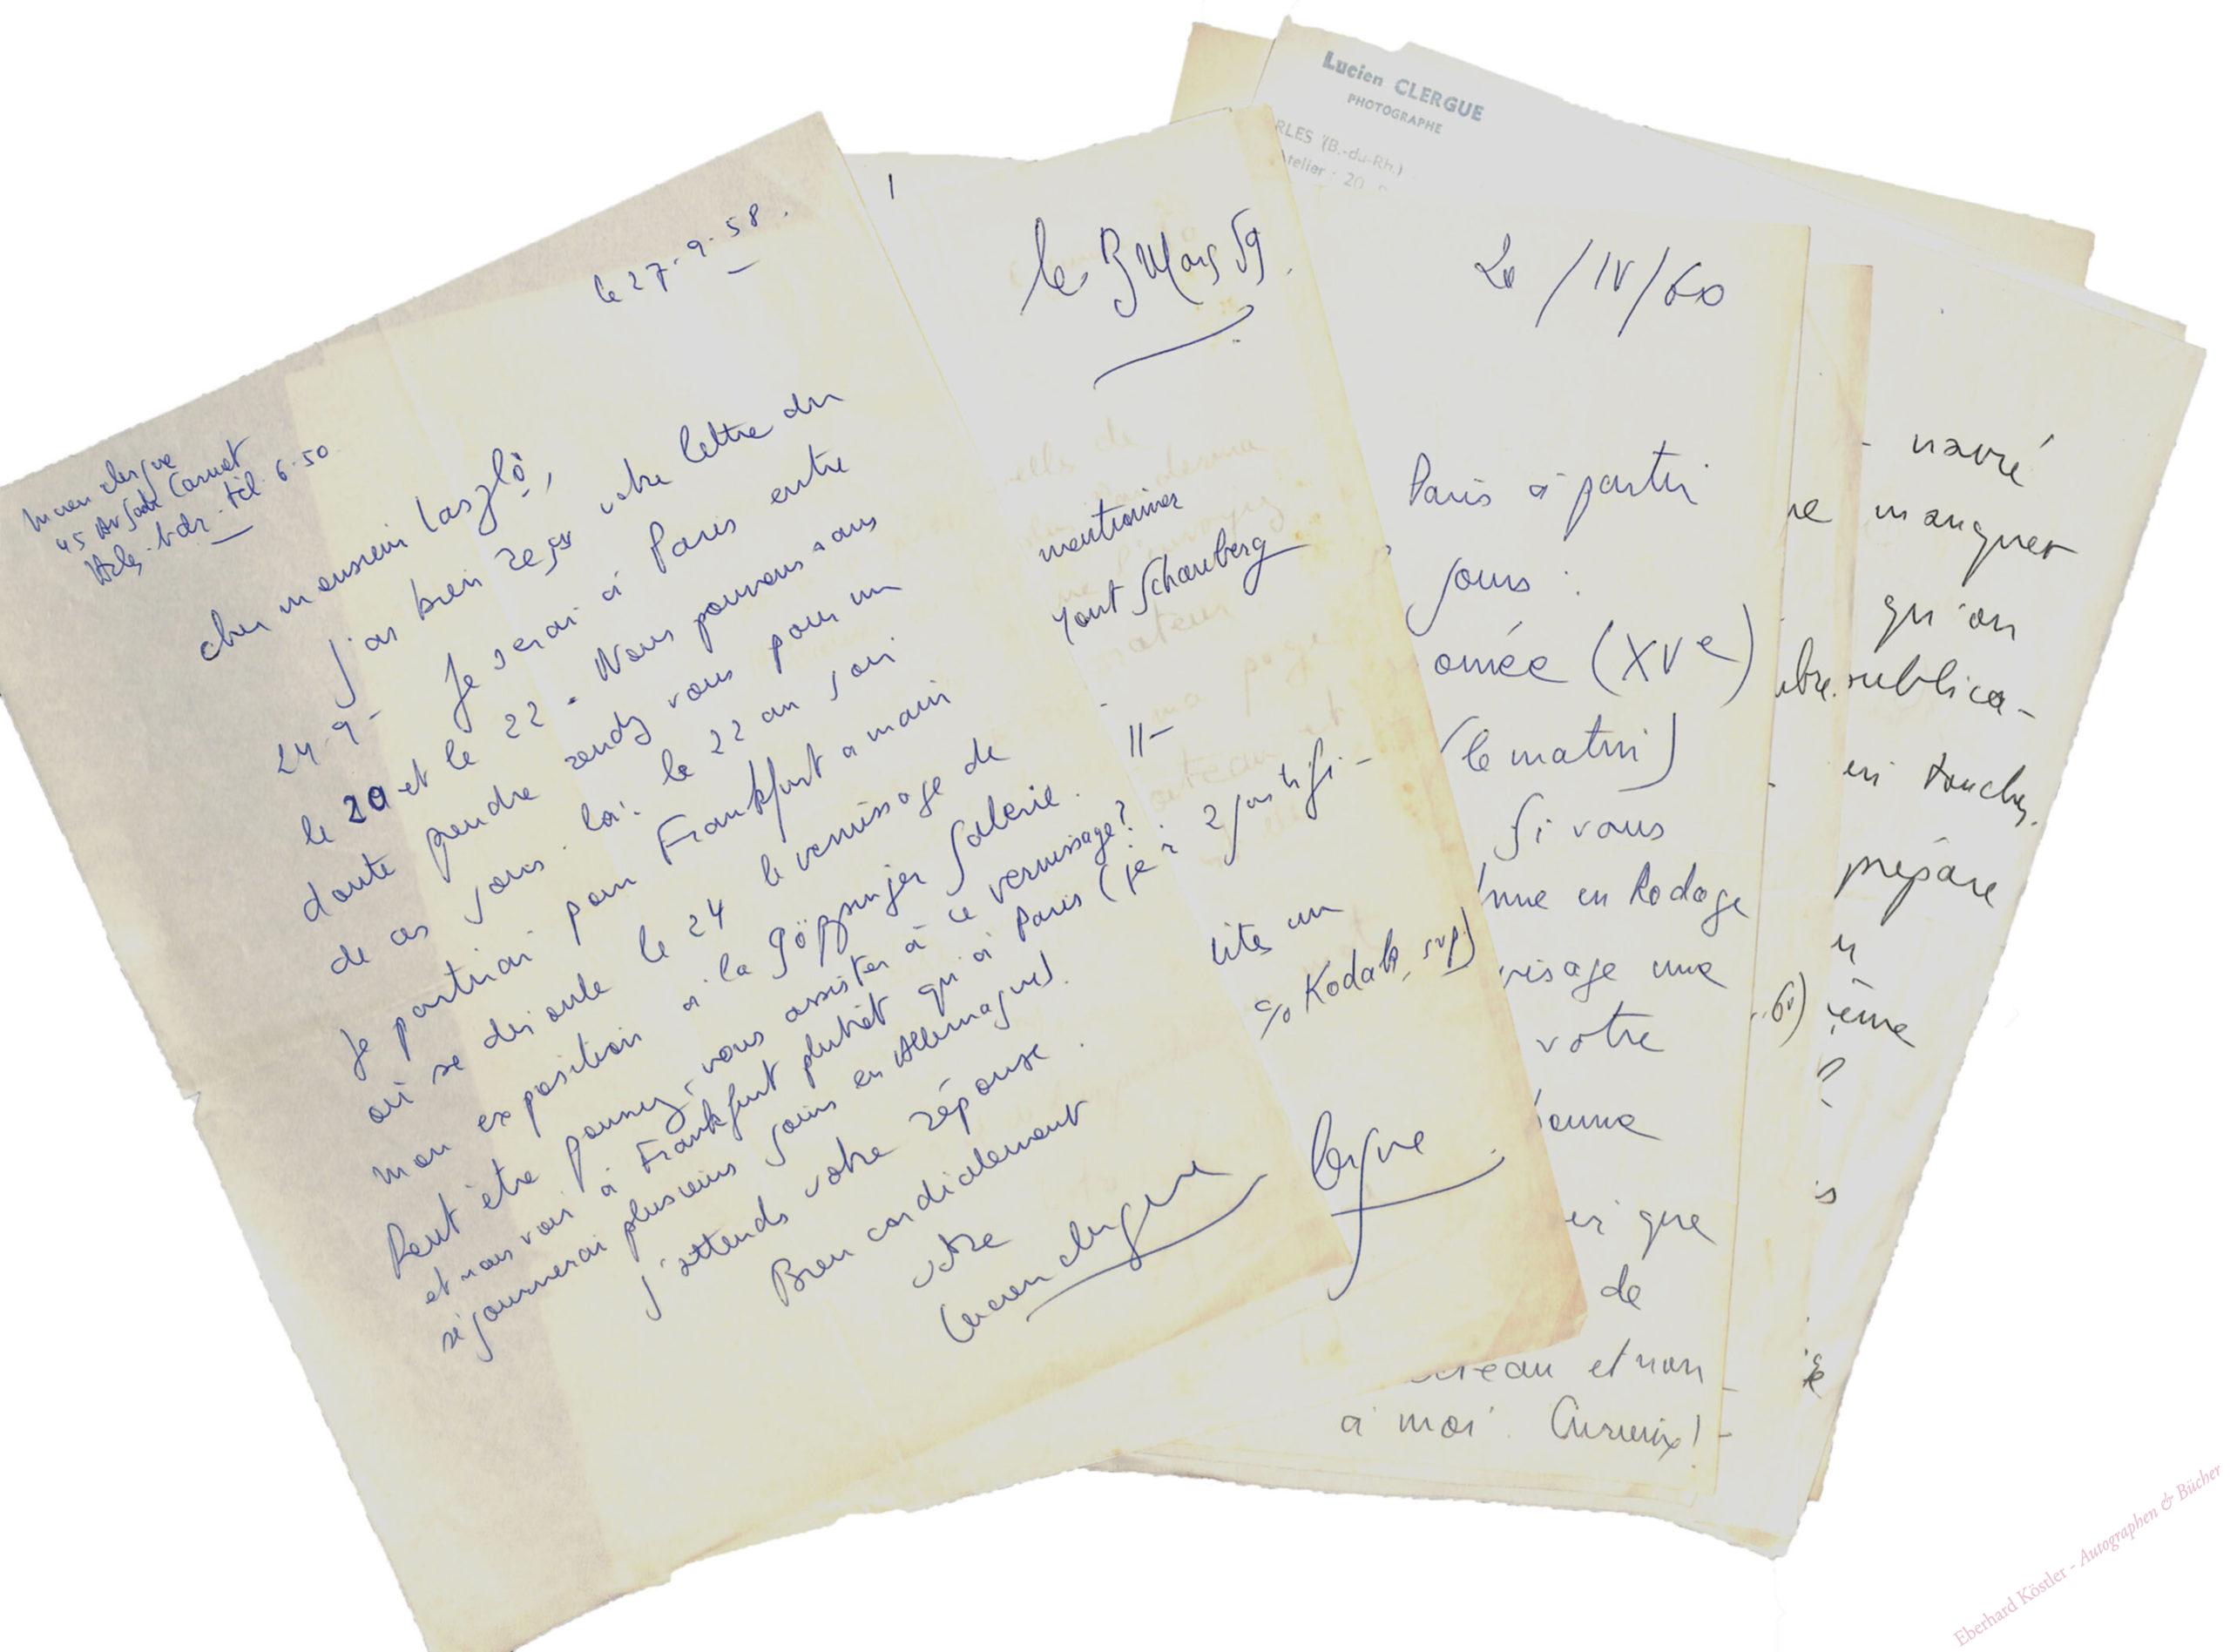 Lucien Clergue
45 Av Sadi Carnot
Arles. b.d.r. tél. 6.50
le 27.9.58.
cher monsieur Laszlo,
j'ai bien reçu votre lettre du
24.9 - Je serai à Paris entre
le 20 et le 22 - Nous pouvons sans
doute prendre rendez vous pour un
de ces jours là : le 22 au soir
Je partirai pour Frankfurt a main
où se déroule le 24 le vernissage de
mon exposition à la göppinger galerie.
Peut être pourrez-vous assister à ce vernissage ?
et nous voir à Frankfurt plutôt qu'à Paris (je
séjournerai plusieurs jours en Allemagne).
j'attends votre réponse.
Bien cordialement
votre
Lucien Clergue
1
le 3 Mars 59.
mentionner
11-
2 justifi-
un
c/o Kodak, svp)
Lucien CLERGUE
PHOTOGRAPHE
RLES (B.-du-Rh.)
telier : 20
20/IV/60
Paris à partir
jours :
(XVe)
(le matin)
Si vous
en Rodage
visage une
votre
que
de
et non
à moi. Curieux ! -
- navré
manquer
qu'on
publica-
en touches.
prépare
Eberhard Köstler - Autographen & Bücher